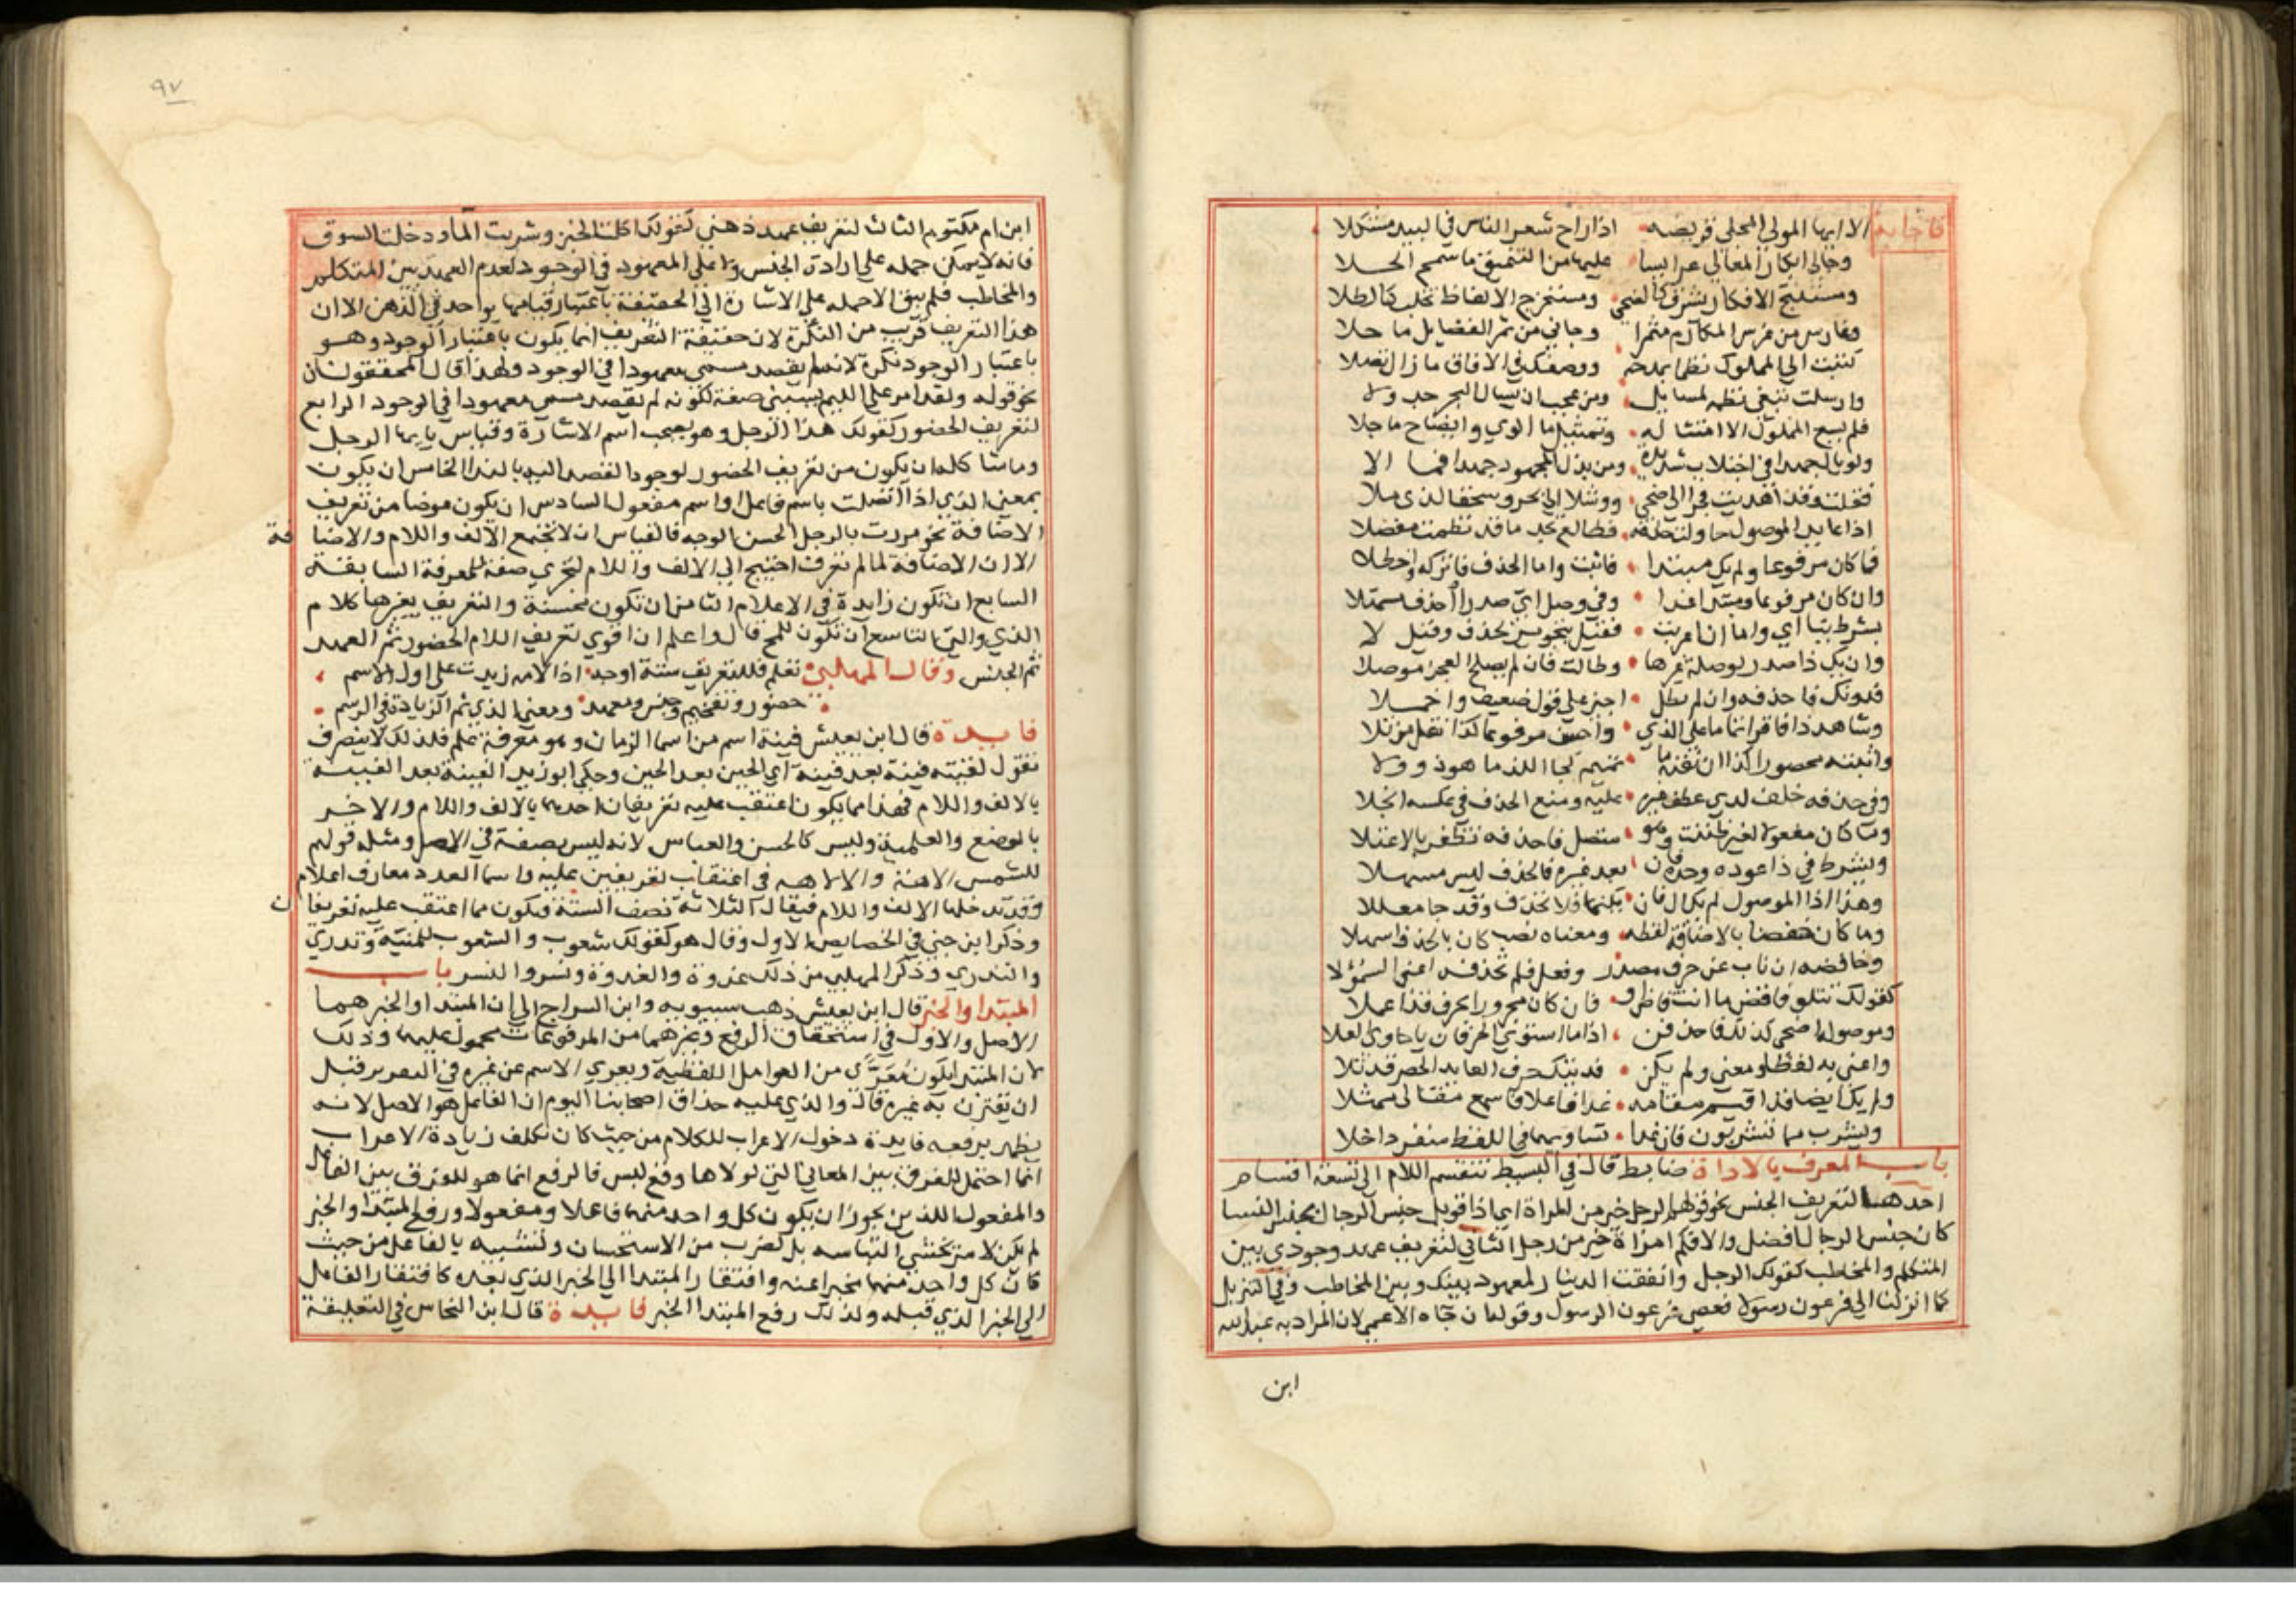 فاجابه
الا ايها المولى المحلى قريضه اذا راح شعر الناس في البيد مشكلا
وجالي ابكار المعاني عرايسا عليها من التنميق ما سمج الحلا
ومستنتج الافكار تشرق كالضحى ومستخرج الالفاظ تجلب كالطلا
وغارس من غرس المكارم مثمرا وجاني من ثمر الفضايل ما حلا
كتبت الي المملوك نظما بمدحه ووصفك في الافاق ما زال افضلا
وارسلت تبغي نظمه لمسايل ومن عجب ان يسال البحر جدولا
فلم يسع المملوك الا امتثاله وتمثيل ما الوي وايضاح ما جلا
ولم يال جهدا في اجتلاب شريده ومن بذل المجهود جهدا فما الا
فقلت وقد اهديت فجرا الى ضحى ووشلا الى بحر وسحقا لذي ملا
اذا عايد الموصول حاولت حذفه فطالع تجد ما قد نظمت مفصلا
فما كان مرفوعا ولم يك مبتدا فاثبت واما الحذف فاتركه واحظلا
وان كان مرفوعا ومبتدا غدا وفي وصل اي صدرا احذف مسهلا
بشرط بنا اي واما ان اعربت فقيل بتجويز لحذف وقيل لا
وان يك ذا صدر لوصلة غيرها وطالت فان لم يصلح العجز موصلا
فدونك فاحذفه وان لم تطل اجز على قول ضعيف واخملا
وشاهد ذا فاقرا تماما على الذي واحسن مرفوعا كذا نقل من تلا
واثبته محصورا كذا ان نفته ما تميم كجا اللذ ما هو ذو ولا
وفي حذفه خلف لدى عطف غيره عليه ومنع الحذف في عكسه انجلا
وما كان مفعولا لغير ظننت وهو متصل فاحذفه تظفر بالاعتلا
ويشرط في ذا عوده وحده فان بعد غيره فالحذف ليس مسهلا
وهذا اذا الموصول لم يك ال فان يكنها فلا تحذف وقد جا معللا
وما كان خفضا بالاضافة لفظه ومعناه نصب كان بالحذف اسهلا
وخافضه ان ناب عن حرف مصدر وفعل فلم تحذفه اعني السموءلا
كقولك تتلو فاقض ما انت قاض او فان كان مجرورا بحرف فذا عملا
وموصوله اضحى كذلك فاحذفن اذا ما استوى الحرفان يا حاوي العلا
واعني به لفظا ومعنى ولم يكن قد ينك حرف العايد الحصر قد تلا
ولم يك ايضا قد اقيم مقامه غدا فاعلا فاسمع مقالي ممثلا
ويشرب مما تشربون فان غدا تساويهما في اللفظ منفردا خلا
باب المعرف بالاداة ضابط قال في البسيط تنقسم اللام الى تسعة اقسام
احدها لتعريف الجنس نحو قولهم الرجل خير من المراة اي اذا قوبل جنس الرجال بجنس النسا
كان جنس الرجال افضل والا فكم امراة خير من رجل الثاني لتعريف عهد وجودي بين
المتكلم والمخاطب كقولك الرجل وانفقت الدينار لمعهود بينك وبين المخاطب وفي التنزيل
كما ارسلنا الى فرعون رسولا فعصى فرعون الرسول وقوله ان جاه الاعمى لان المراد به عبد الله
ابن
٩٧
ابن ام مكتوم الثالث لتعريف عهد ذهني كقولك اكلت الخبز وشربت الما ودخلت السوق
فانه لا يمكن حمله على ارادة الجنس ولا على المعهود في الوجود لعدم العهد بين المتكلم
والمخاطب فلم يبق الا حمله على الاشارة الى الحقيقة باعتبار قيامها بواحد في الذهن الا ان
هذا التعريف قريب من النكرة لان حقيقة التعريف انما يكون باعتبار الوجود وهو
باعتبار الوجود نكرة لانه لم يقصد مسمى معهودا في الوجود ولهذا قال المحققون ان
نحو قوله ولقد امر على الليم يسبني صفة لكونه لم يقصد مسمى معهودا في الوجود الرابع
لتعريف الحضور كقولك هذا الرجل وهو يصحب اسم الاشارة وقياس يا ايها الرجل
وما شاكله ان يكون من تعريف الحضور لوجود القصد اليه بالندا الخامس ان يكون
بمعنى الذي اذا اتصلت باسم فاعل او اسم مفعول السادس ان يكون عوضا من تعريف
الاضافة نحو مررت بالرجل الحسن الوجه فالقياس ان لا تجتمع الالف واللام والاضافة
الا ان الاضافة لما لم تعرف احتيج الى الالف واللام لتجري صفة للمعرفة السابقة
السابع ان تكون زايدة في الاعلام الثامن ان تكون محسنة والتعريف بغيرها كلام
الذي والتي التاسع ان تكون للمح قال واعلم ان اقوى تعريف اللام الحضور ثم العهد
ثم الجنس وقال المهلبي تعلم فللتعريف ستة اوجه اذا لامه زيدت على اول الاسم
حضور وتفخيم وجنس ومعهد ومعنى الذي ثم الزيادة في الرسم
فايدة قال ابن يعيش فينة اسم من اسما الزمان وهو معرفة علم فلذلك لا ينصرف
تقول لقيته فينة بعد فينة اي الحين بعد الحين وحكى ابو زيد الفينة بعد الفينة
بالالف واللام فهذا مما يكون اعتقب عليه تعريفان احدهما بالالف واللام والاخر
بالوضع والعلمية وليس كالحسن والعباس لانه ليس بصفة في الاصل ومثله قولهم
للشمس الاهة والالاهه في اعتقاب تعريفين عليه واسما العدد معارف اعلام
وقد تدخلها الالف واللام فيقال الثلاثة نصف الستة فيكون مما اعتقب عليه تعريفان
وذكر ابن جني في الخصايص الاول وقال هو كقولك شعوب والشعوب للمنية وتدري
والتدري وذكر المهلبي من ذلك غدوة والغدوة ونسر والنسر باب
المبتدا والخبر قال ابن يعيش ذهب سيبويه وابن السراج الى ان المبتدا والخبر هما
الاصل والاول في استحقاق الرفع وغيرهما من المرفوعات محمول عليهما وذلك
لان المبتدا يكون مُعَرًّى من العوامل اللفظية ويعري الاسم عن غيره في التقدير قبل
ان يقترن به غيره قال والذي عليه حذاق اصحابنا اليوم ان الفاعل هو الاصل لانه
يظهر برفعه فايدة دخول الاعراب للكلام من حيث كان تكلف زيادة الاعراب
انما احتمل للفرق بين المعاني التي لولاها وقع لبس فالرفع انما هو للفرق بين الفاعل
والمفعول اللذين يجوز ان يكون كل واحد منهما فاعلا ومفعولا ورفع المبتدا والخبر
لم يكن لامر يخشى التباسه بل لضرب من الاستحسان وتشبيه بالفاعل من حيث
كان كل واحد منهما مخبرا عنه وافتقار المبتدا الى الخبر الذي بعده كافتقار الفاعل
الى الخبر الذي قبله ولذلك رفع المبتدا الخبر فايدة قال ابن النحاس في التعليقة